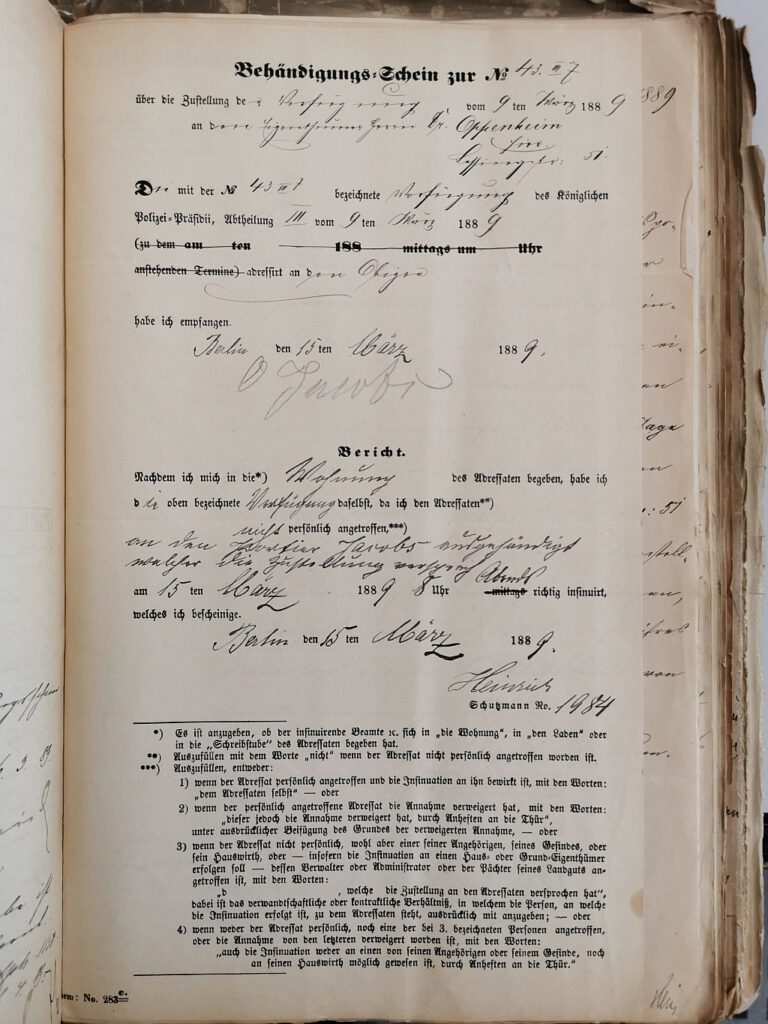 Behändigungs-Schein zur № 43. III 7
über die Zustellung der Verfügung vom 9 ten März 1889
an den Eigenthümer Herrn Dr. Oppenheim
hier
Lessingstr: 51.
Die mit der № 43 III 7 bezeichnete Verfügung des Königlichen
Polizei-Präsidii, Abtheilung III vom 9 ten März 1889
(zu dem am ten 188 mittags um Uhr
anstehenden Termine) adressirt an den Obigen
habe ich empfangen.
Berlin den 15 ten März 1889.
O Jacobs
Bericht.
Nachdem ich mich in die*) Wohnung des Adressaten begeben, habe ich
die oben bezeichnete Verfügung daselbst, da ich den Adressaten**)
nicht persönlich angetroffen,***)
an den Portier Jacobs ausgehändigt
welcher die Zustellung versprach
Abends
am 15 ten März 1889 8 Uhr mittags richtig insinuirt,
welches ich bescheinige.
Berlin den 15 ten März 1889.
Heinrich
Schutzmann No. 1984
*) Es ist anzugeben, ob der insinuirende Beamte ꝛc. sich in „die Wohnung“, in „den Laden“ oder
in die „Schreibstube“ des Adressaten begeben hat.
**) Auszufüllen mit dem Worte „nicht“ wenn der Adressat nicht persönlich angetroffen worden ist.
***) Auszufüllen, entweder:
1) wenn der Adressat persönlich angetroffen und die Insinuation an ihn bewirkt ist, mit den Worten:
„dem Adressaten selbst“ — oder
2) wenn der persönlich angetroffene Adressat die Annahme verweigert hat, mit den Worten:
„dieser jedoch die Annahme verweigert hat, durch Anheften an die Thür“,
unter ausdrücklicher Beifügung des Grundes der verweigerten Annahme, — oder
3) wenn der Adressat nicht persönlich, wohl aber einer seiner Angehörigen, seines Gesindes, oder
sein Hauswirth, oder — insofern die Insinuation an einen Haus- oder Grund-Eigenthümer
erfolgen soll — dessen Verwalter oder Administrator oder der Pächter seines Landguts an-
getroffen ist, mit den Worten:
„d , welche die Zustellung an den Adressaten versprochen hat“,
dabei ist das verwandtschaftliche oder kontraktliche Verhältniß, in welchem die Person, an welche
die Insinuation erfolgt ist, zu dem Adressaten steht, ausdrücklich mit anzugeben; — oder
4) wenn weder der Adressat persönlich, noch eine der bei 3. bezeichneten Personen angetroffen,
oder die Annahme von den letzteren verweigert worden ist, mit den Worten:
„auch die Insinuation weder an einen von seinen Angehörigen oder seinem Gesinde, noch
an seinen Hauswirth möglich gewesen ist, durch Anheften an die Thür.“
orm: No. 283